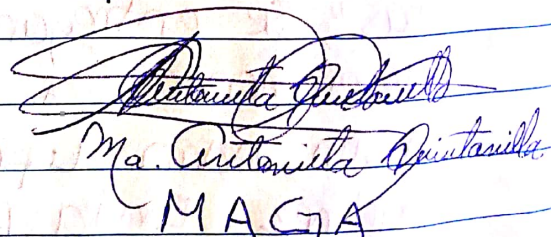 Antonieta Quintanilla
Ma. Antonieta Quintanilla.
MAGA